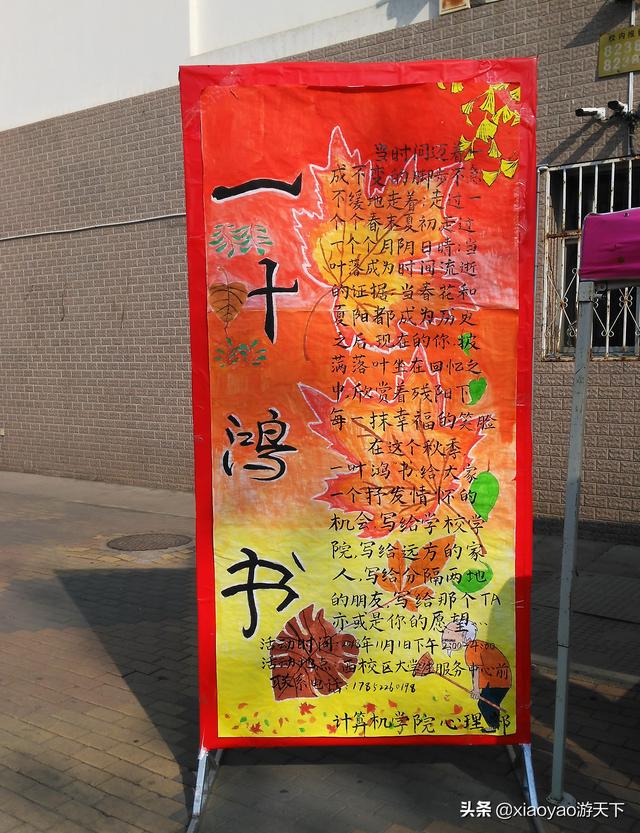 一叶鸿书
当时间迈着一
成不变的脚步不急
不缓地走着;走过一
个个春末夏初;走过
一个个月阴日晴;当
叶落成为时间流逝
的证据;当春花和
夏阳都成为历史
之后,现在的你,披
满落叶坐在回忆之
中,欣赏着残阳下
每一抹幸福的笑脸
在这个秋季
一叶鸿书给大家
一个抒发情怀的
机会,写给学校学
院,写给远方的家
人,写给分隔两地
的朋友,写给那个TA
亦或是你的愿望...
活动时间:11月1日下午
活动地点:西校区大学生服务中心前
联系电话:
计算机学院心理部
校内报
头条 @xiaoyao游天下